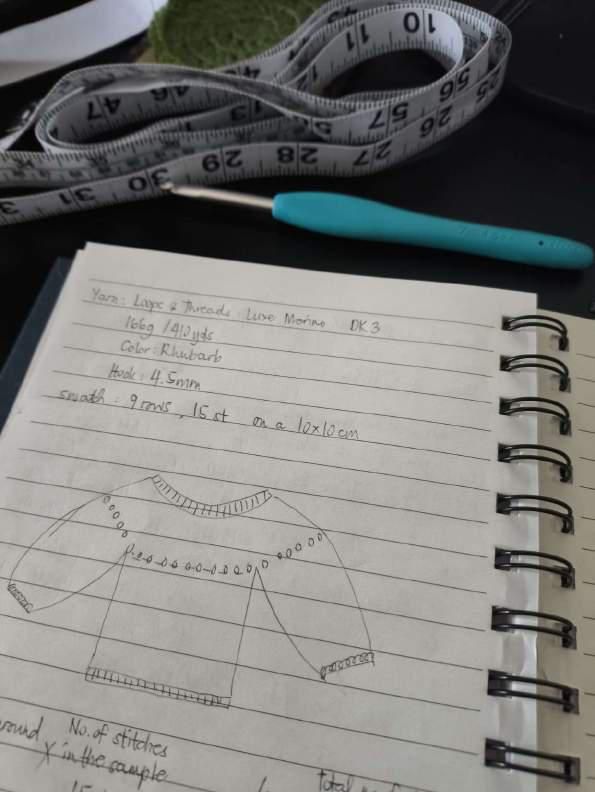 10 11
47 13 57 56 25
26
27
28
29
30
31
3
Yarn: Loops & Threads: Luxe Merino DK 3
166g /410yds
Color: Rhubarb
Hook: 4.5mm
swath: 9 rows, 15 st on a 10x10 cm
round No. of stitches
X in the sample
Total no